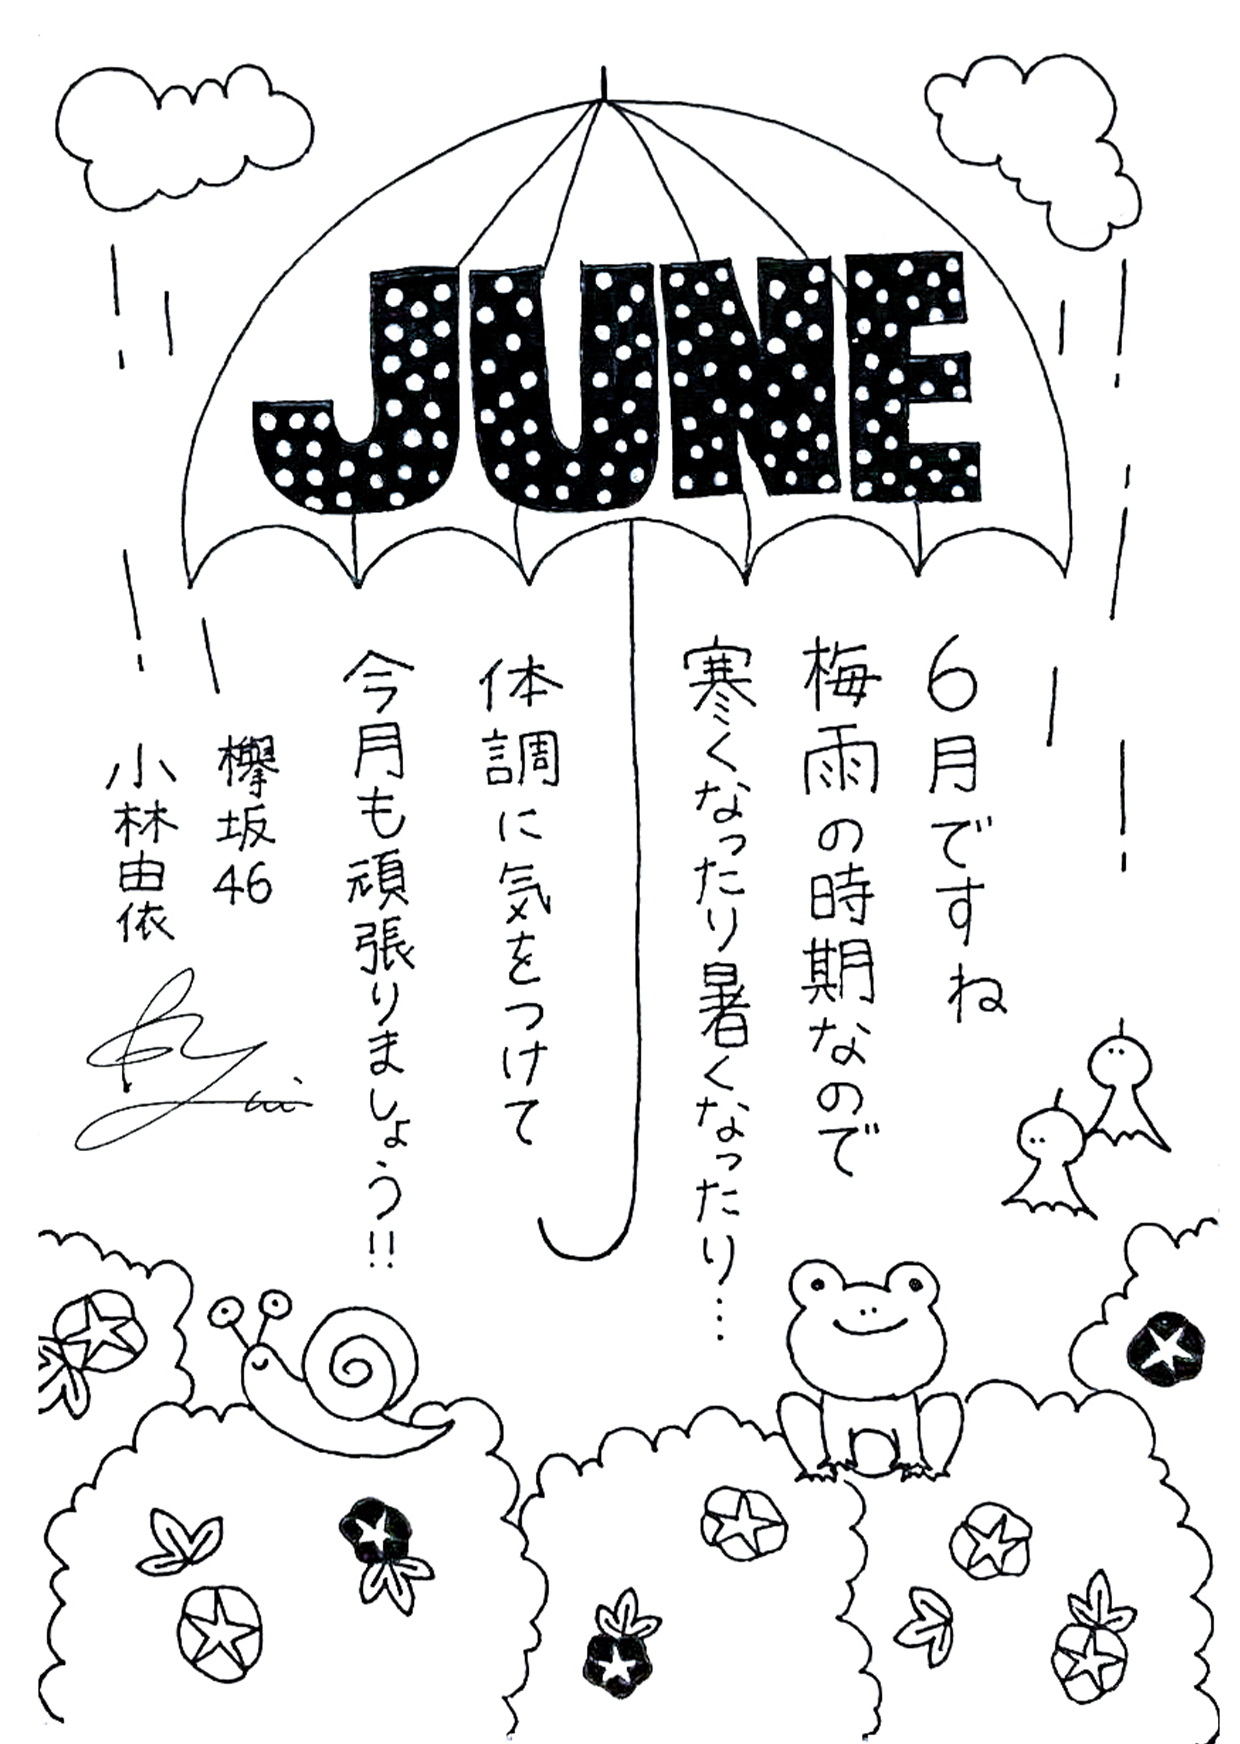 JUNE
6月ですね
梅雨の時期なので
寒くなったり暑くなったり…
体調に気をつけて
今月も頑張りましょう!!
欅坂46
小林由依
Yui